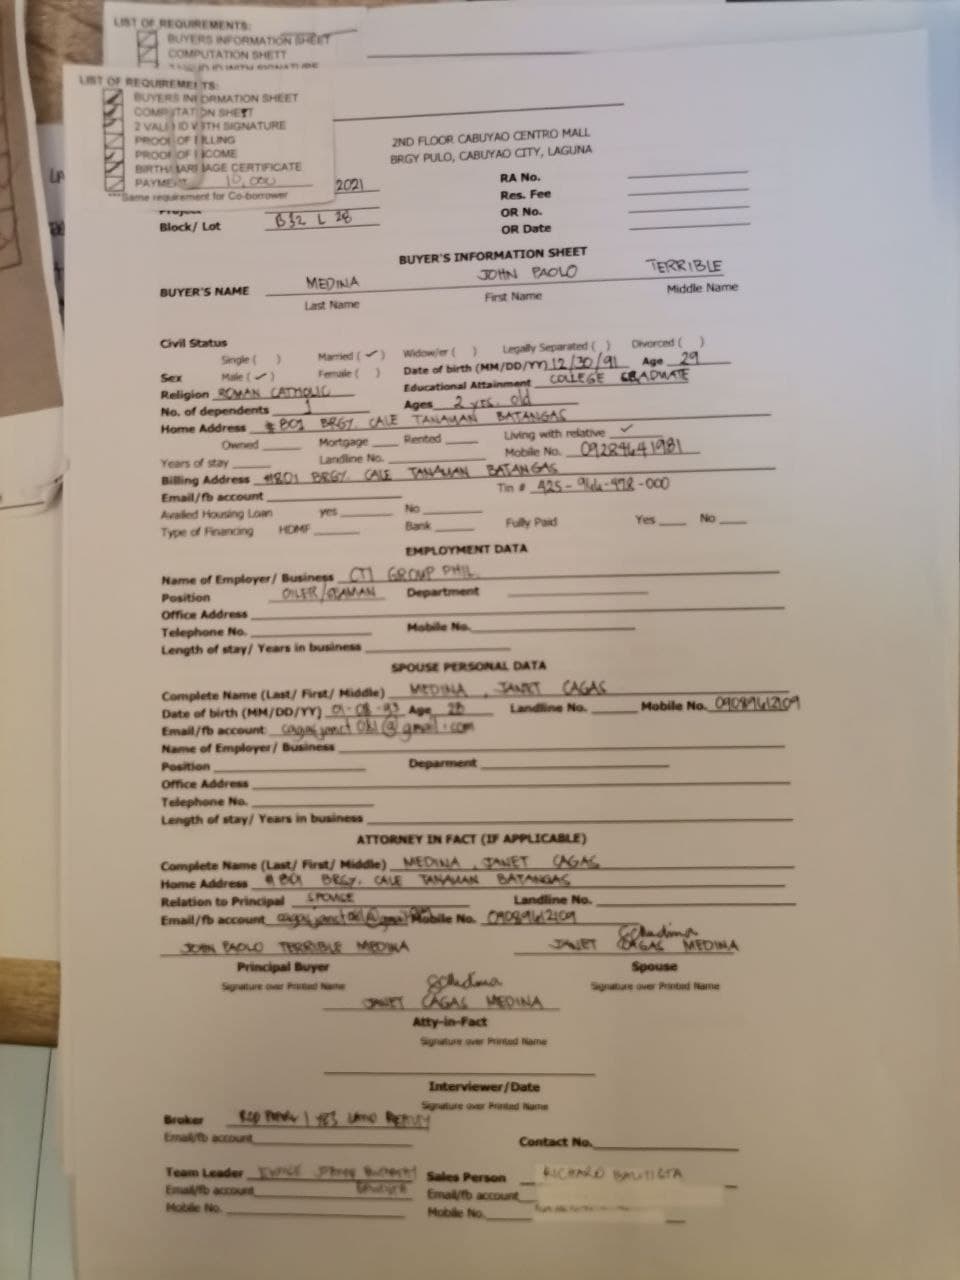 LIST OF REQUIREMENTS:
BUYERS INFORMATION SHEET
COMPUTATION SHETT
LIST OF REQUIREMENTS:
BUYERS INFORMATION SHEET
COMPUTATION SHETT
2 VALID ID WITH SIGNATURE
PROOF OF BILLING
PROOF OF INCOME
BIRTH/MARRIAGE CERTIFICATE
PAYMENT 10,000
***Same requirement for Co-borrower
2ND FLOOR CABUYAO CENTRO MALL
BRGY PULO, CABUYAO CITY, LAGUNA
2021
RA No.
Res. Fee
Project
OR No.
Block/ Lot B32 L 28
OR Date
BUYER'S INFORMATION SHEET
BUYER'S NAME MEDINA JOHN PAOLO TERRIBLE
Last Name First Name Middle Name
Civil Status
Single ( ) Married ( ✓ ) Widow/er ( ) Legally Separated ( ) Divorced ( )
Sex Male ( ✓ ) Female ( ) Date of birth (MM/DD/YY) 12/30/91 Age 29
Religion ROMAN CATHOLIC Educational Attainment COLLEGE GRADUATE
No. of dependents 1 Ages 2 yrs. old
Home Address # 801 BRGY. CALE TANAUAN BATANGAS
Owned Mortgage Rented Living with relative ✓
Years of stay Landline No. Mobile No. 09284641981
Billing Address #801 BRGY. CALE TANAUAN BATANGAS
Email/fb account Tin #
Availed Housing Loan yes No
Type of Financing HDMF Bank Fully Paid Yes No
EMPLOYMENT DATA
Name of Employer/ Business CTI GROUP PHIL.
Position OILER/SEAMAN Department
Office Address
Telephone No. Mobile No.
Length of stay/ Years in business
SPOUSE PERSONAL DATA
Complete Name (Last/ First/ Middle) MEDINA , JANET CAGAS
Date of birth (MM/DD/YY) 01-08-93 Age 28 Landline No. Mobile No. 09089612109
Email/fb account:
Name of Employer/ Business
Position Deparment
Office Address
Telephone No.
Length of stay/ Years in business
ATTORNEY IN FACT (IF APPLICABLE)
Complete Name (Last/ First/ Middle) MEDINA , JANET CAGAS
Home Address # 801 BRGY. CALE TANAUAN BATANGAS
Relation to Principal SPOUSE Landline No.
Email/fb account Mobile No. 09089612109
JOHN PAOLO TERRIBLE MEDINA JANET CAGAS MEDINA
Principal Buyer Spouse
Signature over Printed Name Signature over Printed Name
JANET CAGAS MEDINA
Atty-in-Fact
Signature over Printed Name
Interviewer/Date
Signature over Printed Name
Broker YES LAND REALTY
Email/fb account Contact No.
Team Leader Sales Person RICHARD BAUTISTA
Email/fb account Email/fb account
Mobile No. Mobile No.